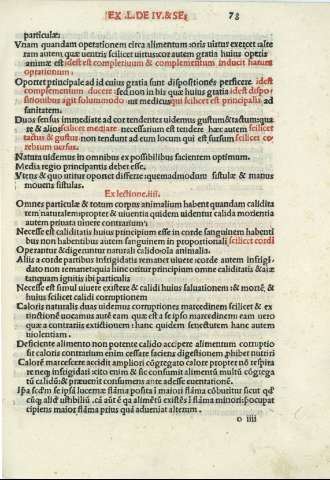 EX L. DE IV. & SE. 78
particulæ:
Vnam quandam operationem circa alimentum oris uirtus exercet
ram autem quæ uentris scilicet uirtus: cor autem gratia huius operis
animæ est idest est complexiuum & complementum inducit
operationum.
Oportet principale ad id cuius gratia sunt dispositiones perficere idest
complementum ducere sed non in his quæ huius gratia idest dispo
sitionibus agit solummodo ut medicus qui scilicet est principalis ad
sanitatem.
Duos sensus immediate ad cor tendentes uidemus gustum & tactum: qua
re & alios scilicet mediate necessarium est tendere hæc autem scilicet
tactus & gustus non tendunt ad eum locum qui est sursum scilicet ce
rebrum uersus.
Natura uidemus in omnibus ex possibilibus facientem optimum.
Media regio principantis debet esse.
Vtens & quo utitur oportet differre: quemadmodum fistulæ & manus
mouens fistulas.
Ex lectione .iiii.
Omnes particulæ & totum corpus animalium habent quandam calidita
tem naturalem: propter & uiuentia quidem uidentur calida modentia
autem priuata uiuere contrarium:
Necesse est caliditatis huius principium esse in corde sanguinem habenti
bus non habentibus autem sanguinem in proportionali scilicet cordi
Operantur & digeruntur naturali calido oîa animalia.
Aliis a corde partibus infrigidatis remanet uiuere: corde autem infrigi
dato non remanet: quia hinc oritur principium omne caliditatis & aîæ
tanquam ignitis ibi particulis
Necesse est simul uiuere existere & calidi huius saluationem: & morte &
huius calidi corruptionem
Caloris naturalis duas uidemus corruptiones marcedinem scilicet & ex
tinctionē uocamus autē eam quæ est a se ipso marcedinem: eam uero
quæ a contrariis extinctionem: hanc quidem senectutem hanc autem
uiolentiam.
Deficiente alimento non potente calido accipere alimentum corruptio
fit caloris contrarium enim cessare faciens digestionem phibet nutriri
Calore marcescere accidit ampliori cōgregato calore propter nō respira
re neq; infrigidari: cito enim & sic consumit alimentū multū congrega
tū calidū: & præuenit consumens ante adesse euentationē.
cipiens maior flāma prius quā adueniat alterum.
o iiii